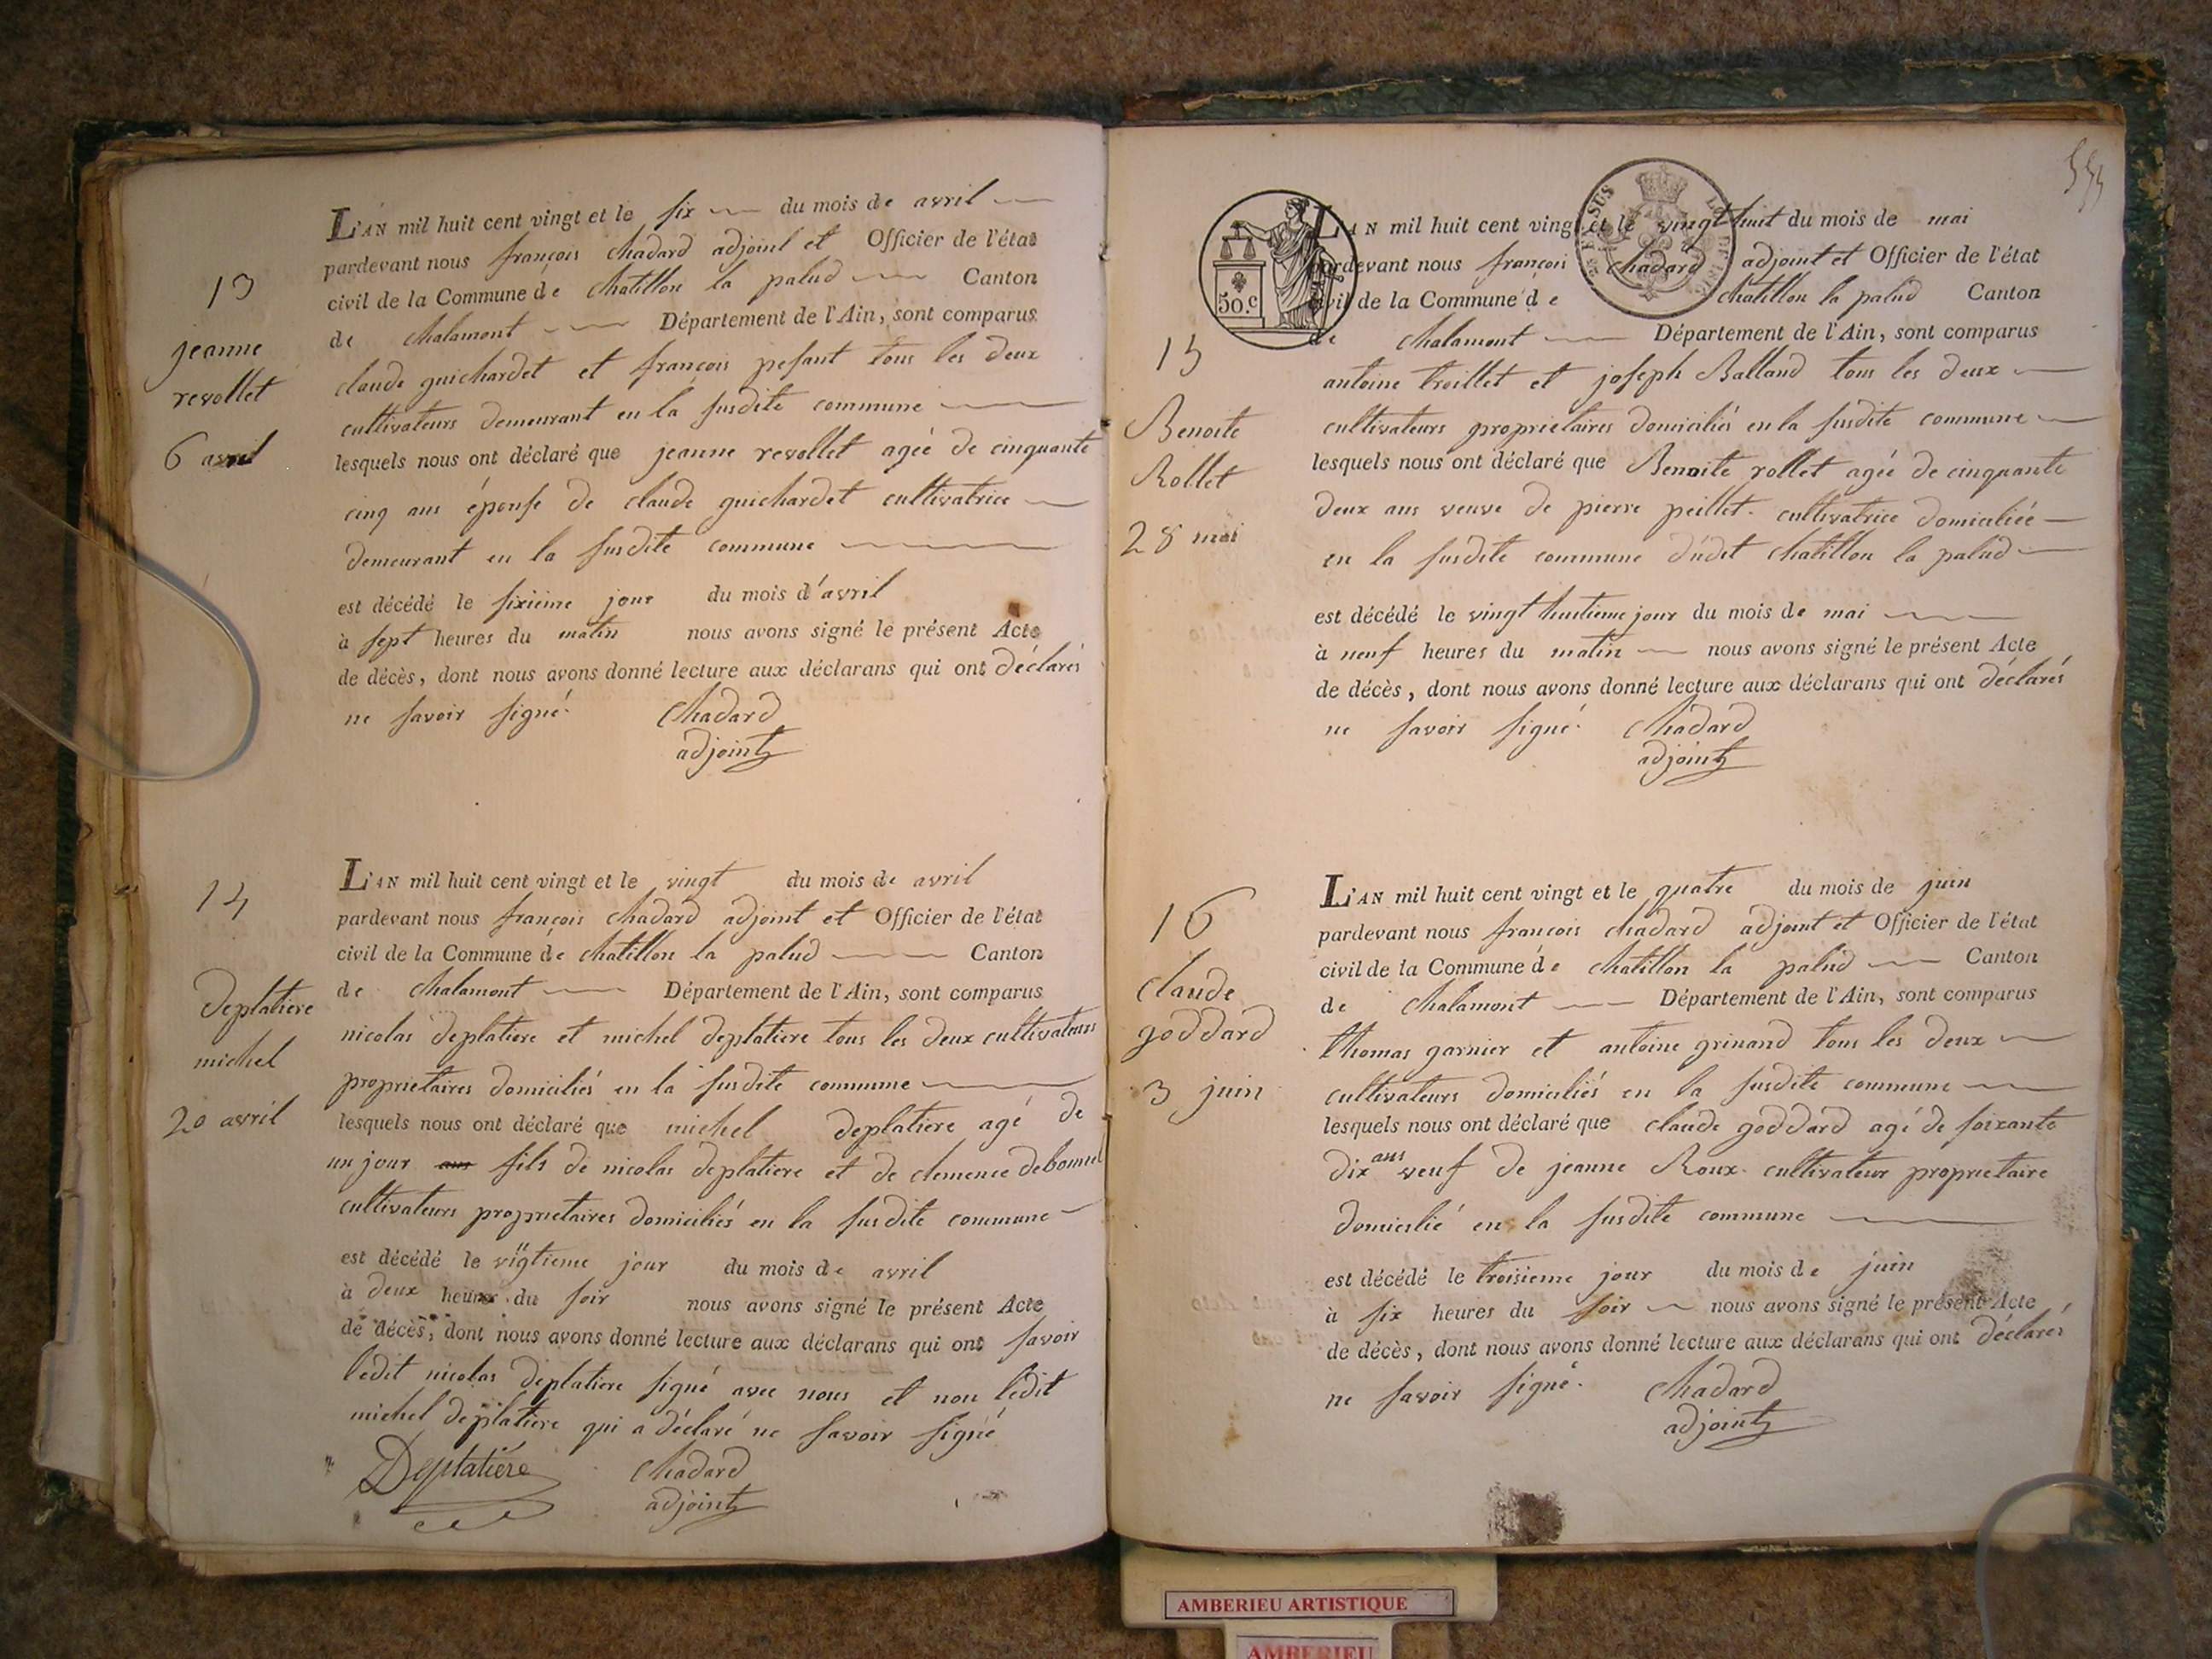 13
jeanne
revollet
6 avril
L'AN mil huit cent vingt et le six du mois de avril
pardevant nous françois chadard adjoint et Officier de l'état
civil de la Commune de chatillon la palud Canton
de chalamont Département de l'Ain, sont comparus
claude guichardet et françois pesant tous les deux
cultivateurs demeurant en la susdite commune
lesquels nous ont déclaré que jeanne revollet agée de cinquante
cinq ans épouse de claude guichardet cultivatrice
demeurant en la susdite commune
est décédé le sixième jour du mois d'avril
à sept heures du matin nous avons signé le présent Acte
de décès, dont nous avons donné lecture aux déclarans qui ont déclarés
ne savoir signé.
Chadard
adjoint
14
deplatiere
michel
20 avril
L'AN mil huit cent vingt et le vingt du mois de avril
pardevant nous françois chadard adjoint et Officier de l'état
civil de la Commune de chatillon la palud Canton
de chalamont Département de l'Ain, sont comparus
nicolas deplatiere et michel deplatiere tous les deux cultivateurs
proprietaires domiciliés en la susdite commune
lesquels nous ont déclaré que michel deplatiere agé de
un jour ans fils de nicolas deplatiere et de clemence
cultivateurs proprietaires domiciliés en la susdite commune
est décédé le jour du mois de avril
à deux heures du soir nous avons signé le présent Acte
de décès, dont nous avons donné lecture aux déclarans qui ont savoir
ledit nicolas deplatiere signé avec nous et non ledit
michel deplatiere qui a déclaré ne savoir signé
Deplatiére
Chadard
adjoint
50.c
15
Benoite
Rollet
28 mai
L'AN mil huit cent vingt et le vingt huit du mois de mai
pardevant nous françois chadard adjoint et Officier de l'état
civil de la Commune de chatillon la palud Canton
de chalamont Département de l'Ain, sont comparus
antoine troillet et joseph Balland tous les deux
cultivateurs proprietaires domiciliés en la susdite commune
lesquels nous ont déclaré que Benoite rollet agée de cinquante
deux ans veuve de pierre peillet. cultivatrice domiciliée
en la susdite commune dudit chatillon la palud
est décédé le vingt huitieme jour du mois de mai
à neuf heures du matin nous avons signé le présent Acte
de décès, dont nous avons donné lecture aux déclarans qui ont déclarés
ne savoir signé.
Chadard
adjoint
16
claude
goddard
3 juin
L'AN mil huit cent vingt et le quatre du mois de juin
pardevant nous françois chadard adjoint et Officier de l'état
civil de la Commune de chatillon la palud Canton
de chalamont Département de l'Ain, sont comparus
thomas garnier et antoine grinand tous les deux
cultivateurs domiciliés en la susdite commune
lesquels nous ont déclaré que claude goddard agé de soixante
dix ans veuf de jeanne Roux. cultivateur proprietaire
domicilié en la susdite commune
est décédé le troisieme jour du mois de juin
à six heures du soir nous avons signé le présent Acte
de décès, dont nous avons donné lecture aux déclarans qui ont déclarés
ne savoir signé.
Chadard
adjoint
AMBERIEU ARTISTIQUE
AMBERIEU